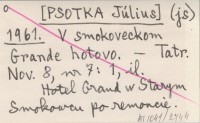 [PSOTKA Július] (js)
1961. V smokoveckom
Grande hotovo. – Tatr.
Nov. 8, nr 7: 1, il.
Hotel Grand w Starym
Smokowcu po remoncie.